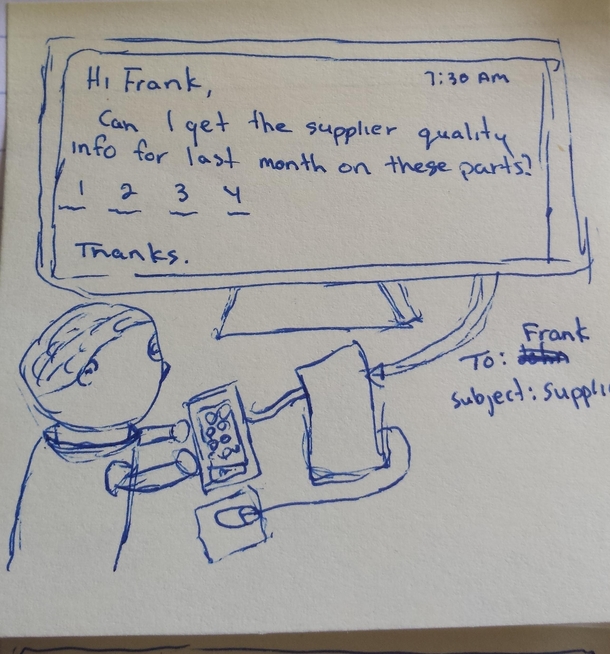 Hi Frank,
7:30 AM
Can I get the supplier quality
info for last month on these parts?
1 2 3 4
Thanks.
Frank
To: John
Subject: Suppli